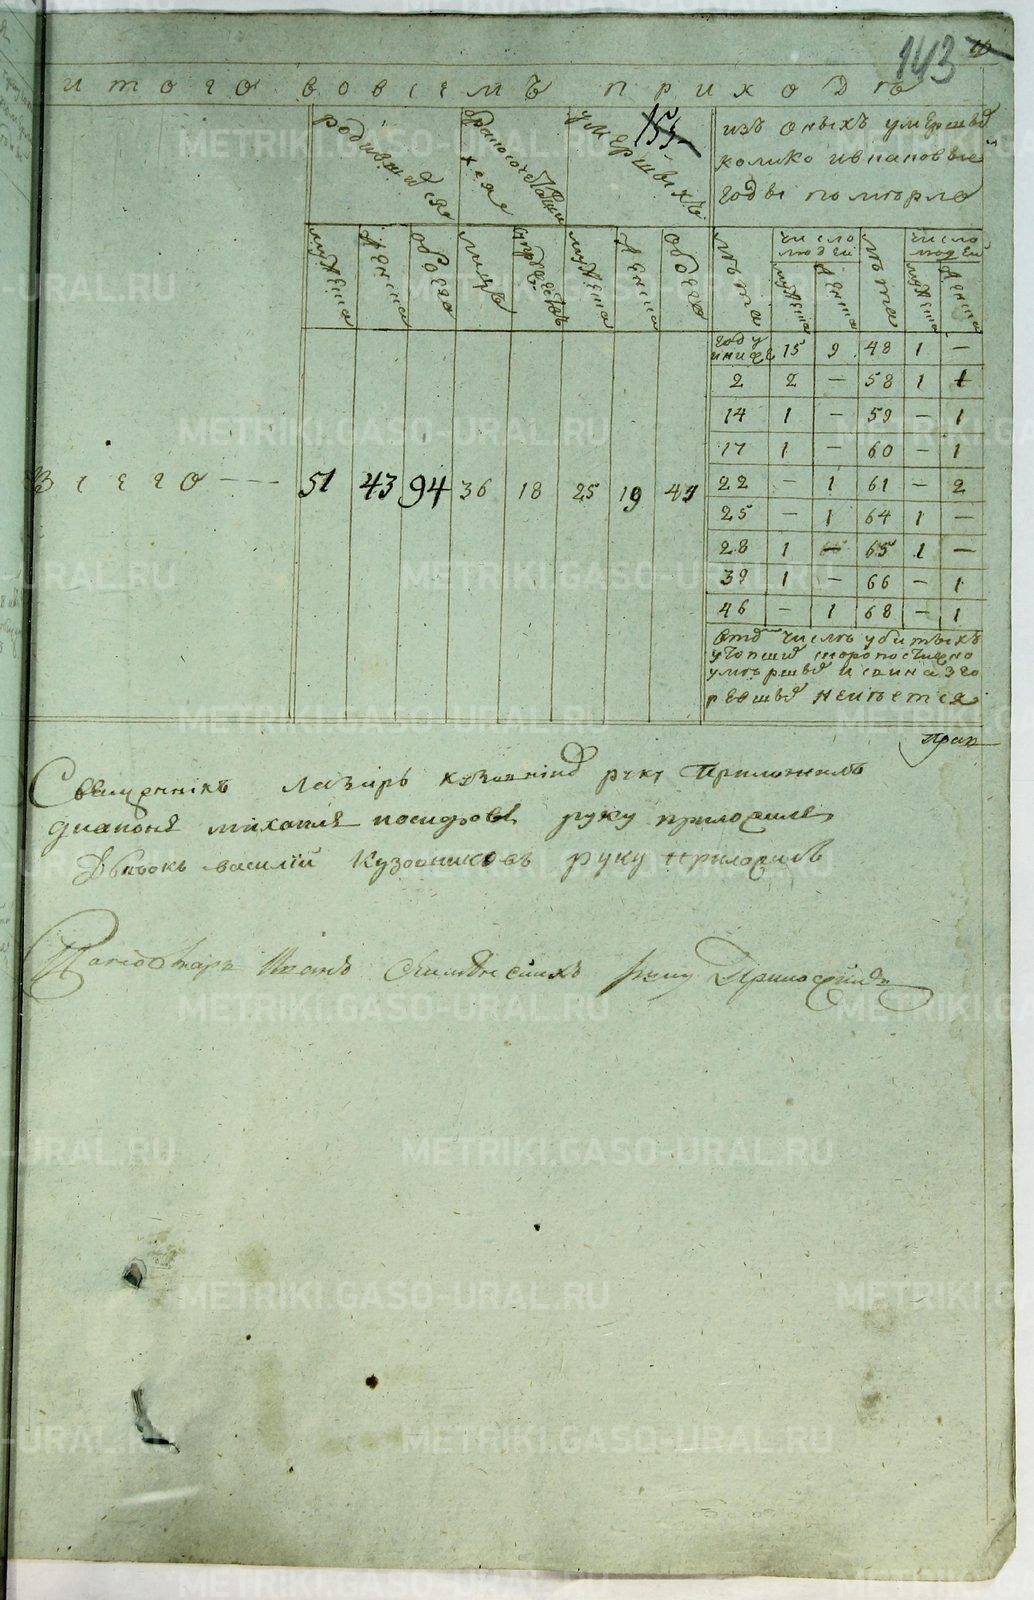 143
итого во всемъ приходѣ
155
родившихся
бракосочетавшихся
умершихъ
изъ оныхъ умершихъ
колико и в каковые
годы померло
мужеска
женска
обоего
мужеска
женска
обоего
лѣта
число людей
мужеска
женска
лѣта
число людей
мужеска
женска
году и ниже 15 9 48 1 —
2 2 — 58 1 1
14 1 — 59 — 1
17 1 — 60 — 1
Всего — — 51 43 94 36 18 25 19
22 — 1 61 — 2
25 — 1 64 1 —
28 1 — 65 1 —
39 1 — 66 — 1
46 — 1 68 — 1
отъ числѣ убитыхъ
скоропостижно
умершихъ и
неимеется
Священникъ Лазарь руку приложилъ
диаконъ михаилъ руку приложилъ
Дьячокъ василій Кузовниковъ руку приложилъ
Пономарь Иванъ руку Приложилъ
METRIKI.GASO-URAL.RU